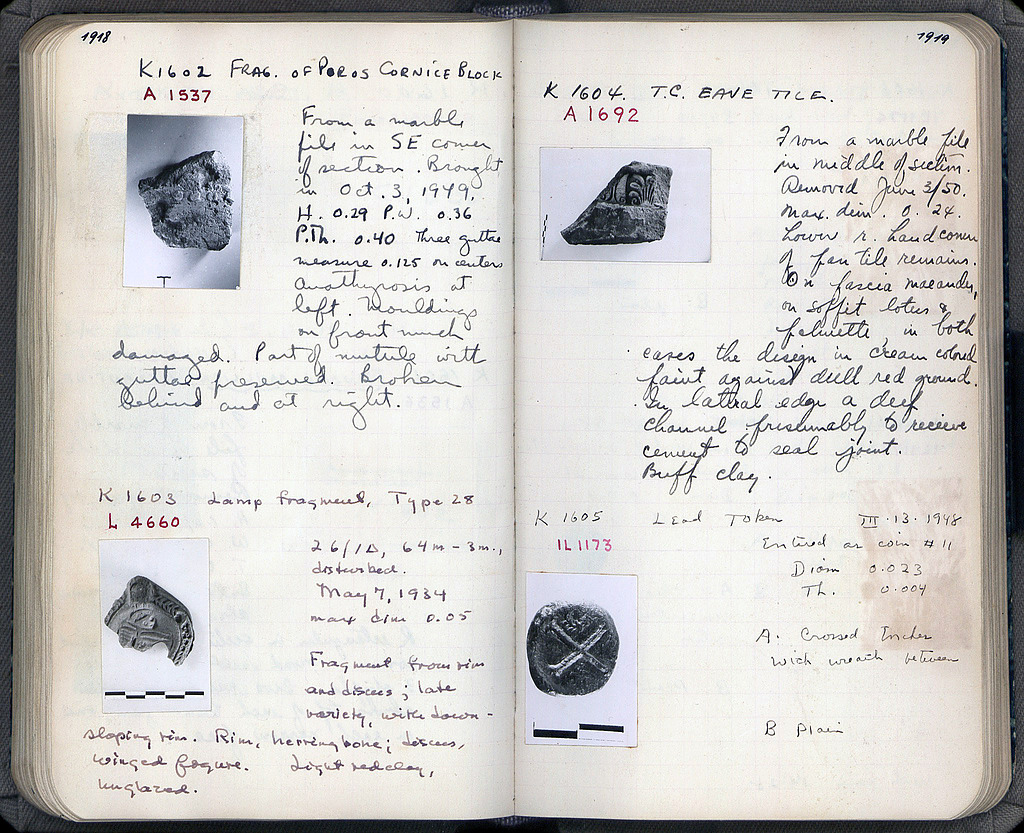 1918
K1602 FRAG. OF POROS CORNICE BLOCK
A 1537
From a marble
pile in SE corner
of section. Brought
in Oct. 3, 1949.
H. 0.29 P.W. 0.36
P.Th. 0.40 Three guttae
measure 0.125 on centers
Anathyrosis at
left. Mouldings
on front much
damaged. Part of mutule with
guttae preserved. Broken
behind and at right.
K 1603 Lamp fragment, Type 28
L 4660
26/ΙΔ, 64m-3m.,
disturbed.
May 7, 1934
max dim 0.05
Fragment from rim
and discus; late
variety, with down-
sloping rim. Rim, herringbone; discus,
winged figure. Light red clay,
unglazed.
1919
K 1604. T.C. EAVE TILE.
A 1692
From a marble pile
in middle of section.
Removed June 3/50.
Max. dim. 0.24.
Lower r. hand corner
of pan tile remains.
On fascia maeander,
on soffit lotus &
palmette, in both
cases the design in cream colored
paint against dull red ground.
In lateral edge a deep
channel presumably to receive
cement to seal joint.
Buff clay.
K 1605 Lead Token III·13·1948
IL1173
Entered as coin #11
Diam 0.023
Th. 0.004
A. Crossed torches
with wreath between
B Plain